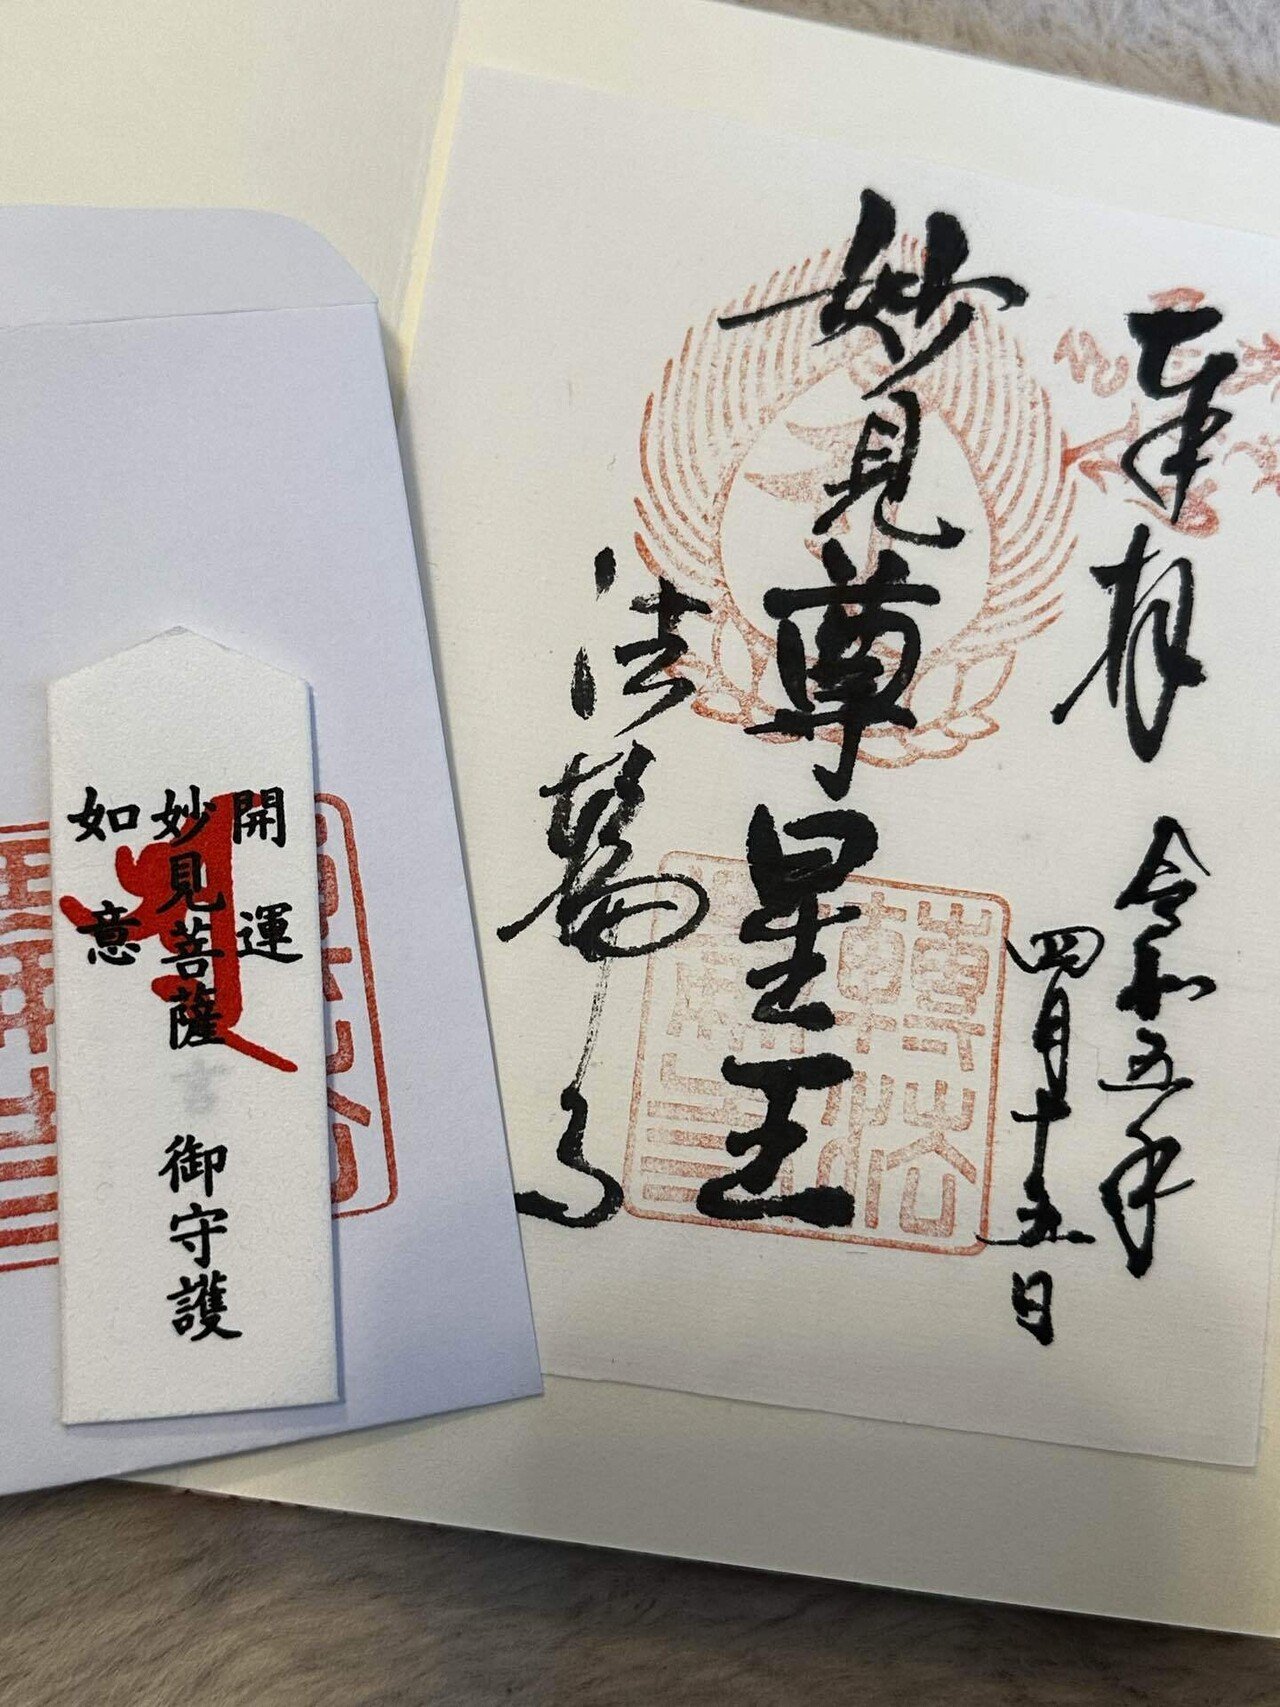 奉拝
令和五年
四月十五日
妙見尊星王
法輪寺
開運
妙見菩薩
如意
御守護